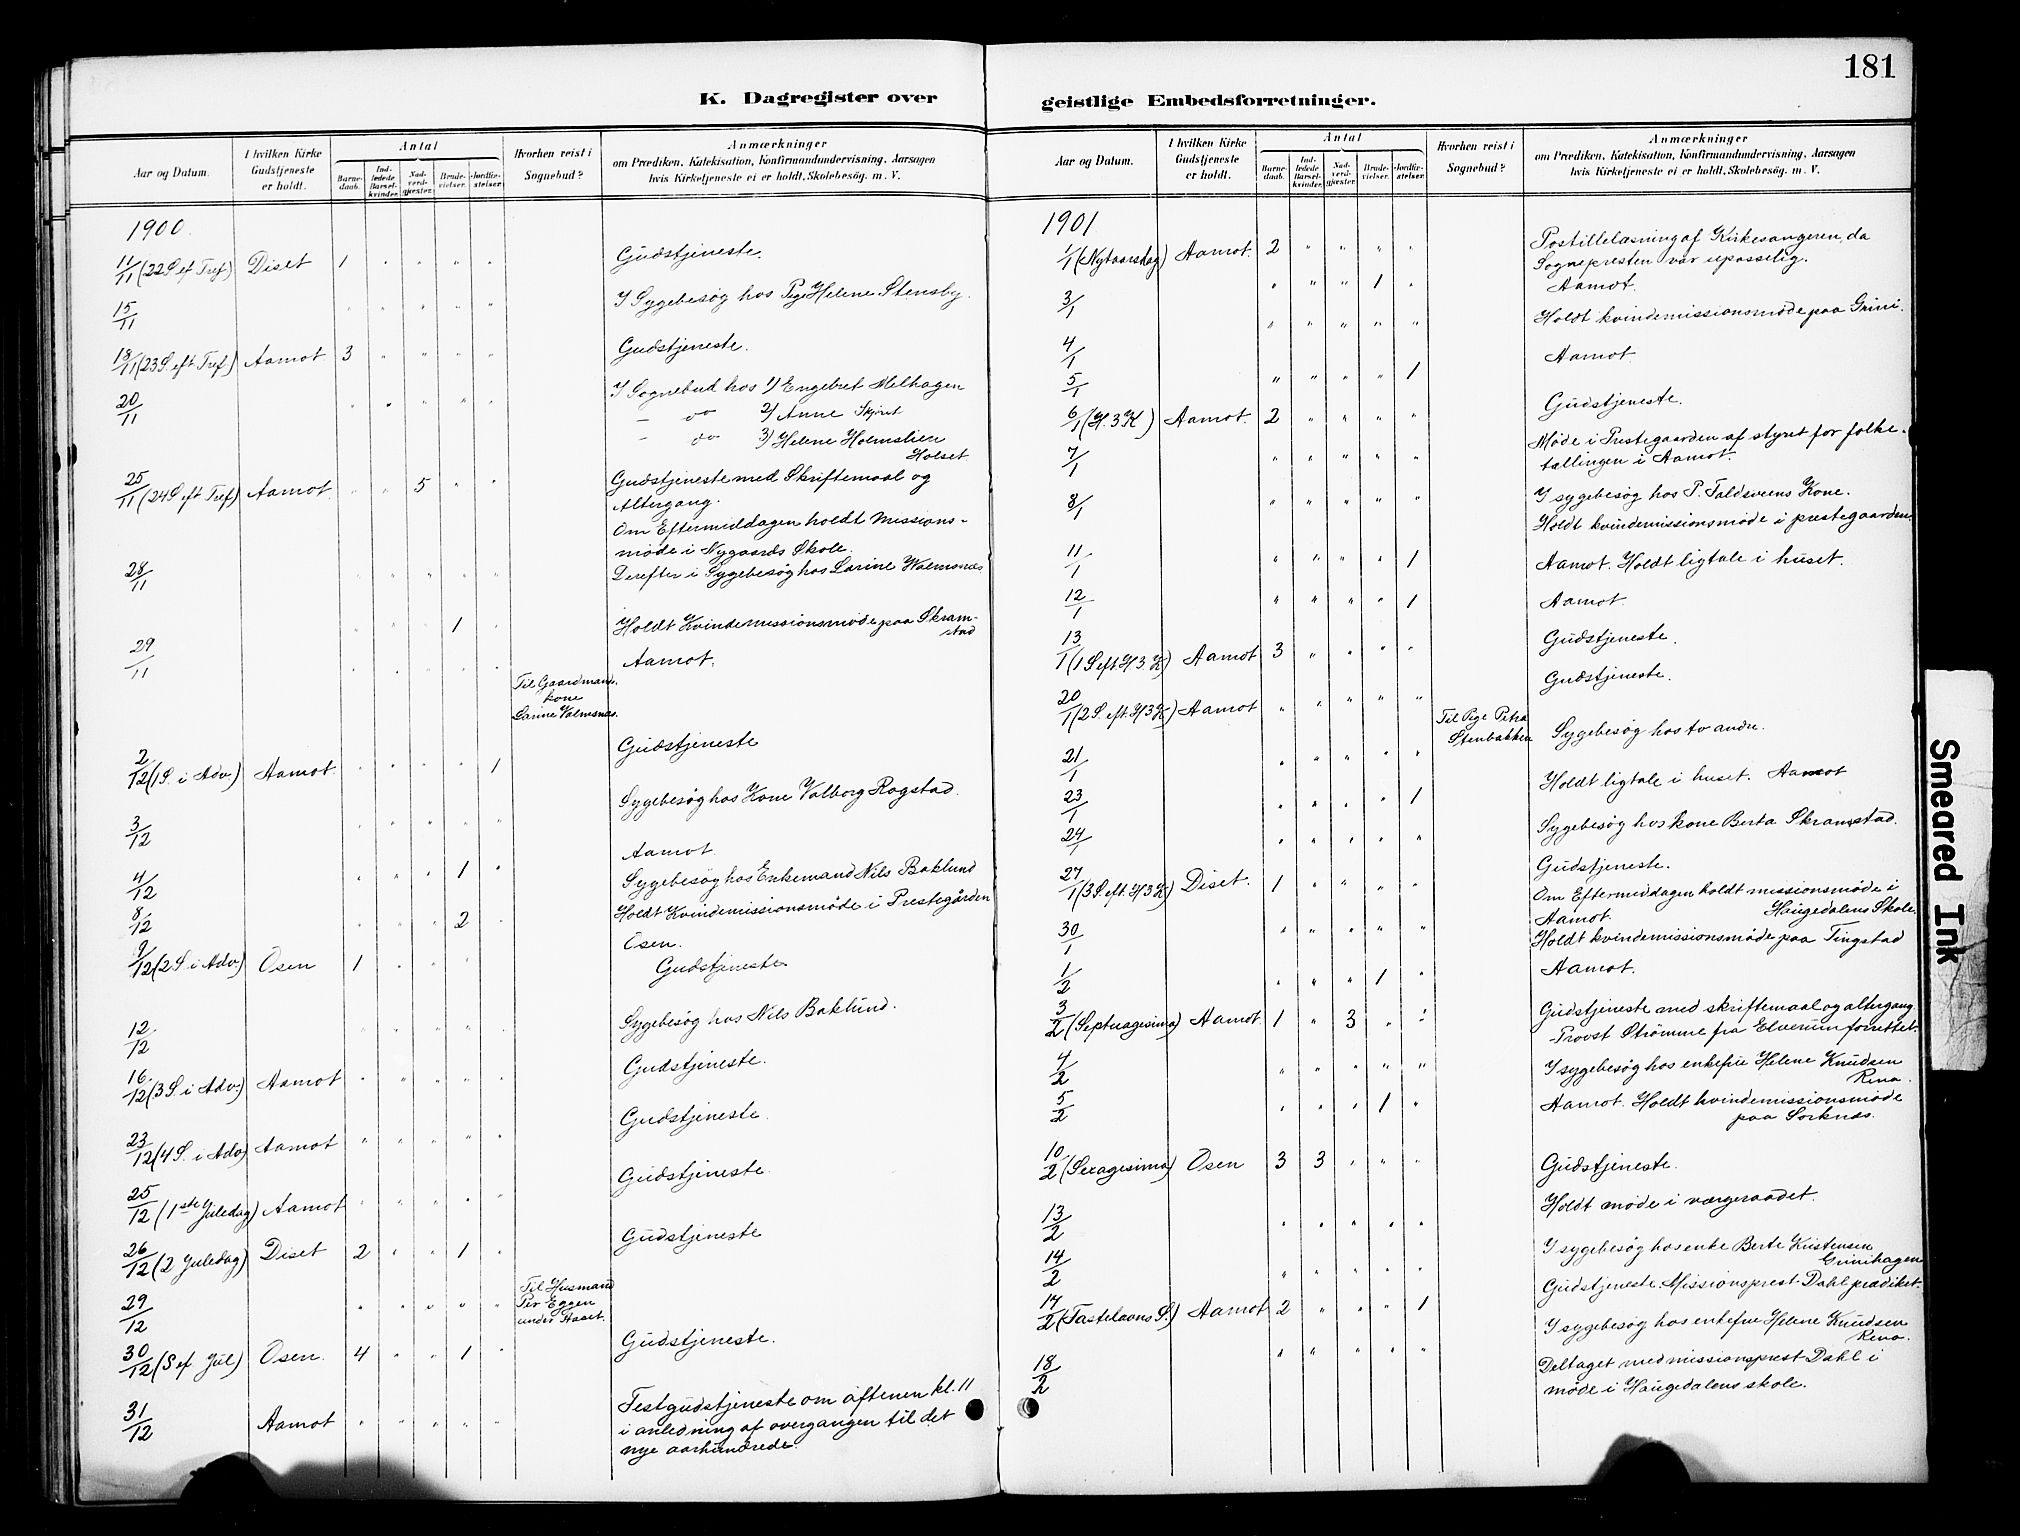 181
K. Dagregister over geistlige Embedsforretninger.
Aar og Datum.
I hvilken Kirke Gudstjeneste er holdt.
Antal
Barnedaab.
Indledede Barselkvinder.
Nadverdgjester.
Brudevielser.
Jordfæstelser.
Hvorhen reist i Sognebud?
Anmærkninger
om Prædiken, Katekisation, Konfirmandundervisning, Aarsagen
hvis Kirketjeneste ei er holdt, Skolebesøg. m. V.
1900.
11/11 (22 S. ef Tref) Diset 1 " " " " Gudstjeneste.
15/11 " " " " " I Sygebesøg hos Pige Helene Stensby.
18/11 (23 S. eft Tref) Aamot 3 " " " " Gudstjeneste.
20/11 " " " " " I Sognebud hos 1) Engebret Melhagen
– do 2) Anne Skjøret
– do 3) Helene Holmslien
Holset
25/11 (24 S eft Tref) Aamot " " 5 " " Gudstjeneste med Skriftemaal og
Altergang.
Om Eftermiddagen holdt Missions-
møde i Nygaards Skole.
28/11 " " " " " Derefter i Sygebesøg hos Larine Valmsnæs.
" " " 1 " Holdt Kvindemissionsmøde paa Skram-
stad
29/11 " " " " " Aamot.
Til Gaardmand.
kone
Larine Valmsnæs.
2/12 (1 S. i Adv.) Aamot. " " " " 1 Gudstjeneste
3/12 " " " " " Sygebesøg hos Kone Valborg Rogstad.
Aamot.
4/12 " " " 1 " Sygebesøg hos Enkemand Nils Baklund
8/12 " " " 2 " Holdt Kvindemissionsmøde i Prestegården
Osen.
9/12 (2 S i Adv.) Osen 1 " " " " Gudstjeneste
12/12 " " " " " Sygebesøg hos Nils Baklund.
16/12 (3 S i Adv.) Aamot " " " " " Gudstjeneste.
23/12 (4 S. i Adv) Aamot " " " " " Gudstjeneste.
25/12 (1ste Juledag) Aamot " " " " " Gudstjeneste.
26/12 (2 Juledag) Diset 2 " " 1 " Gudstjeneste
29/12 " " " " " Til Husmand
Per Eggen
under Haset.
30/12 (S ef Jul) Osen. 4 " " 1 " Gudstjeneste.
31/12 Aamot " " " " " Festgudstjeneste om aftenen kl. 11
i anledning af overgangen til det
nye aarhundrede.
Aar og Datum.
I hvilken Kirke Gudstjeneste er holdt.
Antal
Barnedaab.
Indledede Barselkvinder.
Nadverdgjester.
Brudevielser.
Jordfæstelser.
Hvorhen reist i Sognebud?
Anmærkninger
om Prædiken, Katekisation, Konfirmandundervisning, Aarsagen
hvis Kirketjeneste ei er holdt, Skolebesøg. m. V.
1901
1/1 (Nytaarsdag) Aamot. 2 " " " " Postillelæsning af Kirkesangeren, da
Sognepresten var upasselig.
3/1 " " " 1 " Aamot.
" " " " " Holdt kvindemissionsmøde paa Grini.
4/1 Aamot.
5/1 " " " " 1
6/1 (H. 3 K) Aamot. 2 " " " " Gudstjeneste.
7/1 " " " " " Møde i Prestegaarden af styret for folke-
tællingen i Aamot.
8/1 " " " " " I sygebesøg hos P. Faldsveens Kone.
Holdt kvindemissionsmøde i prestegaarden.
11/1 " " " " 1 Aamot. Holdt ligtale i huset.
12/1 " " " " 1 Aamot.
13/1 (1 S eft. H 3. K) Aamot 3 " " " " Gudstjeneste.
20/1 (2 S. eft. H 3 K) Aamot " " " " " Gudstjeneste.
21/1 " " " " " Til Pige Petra
Stenbakken Sygebesøg hos to andre.
23/1 " " " " 1 Holdt ligtale i huset. Aamot
24/1 " " " " " Sygebesøg hos kone Berta Skramstad.
27/1 (3 S. eft. H 3 K) Diset. 1 " " " " Gudstjeneste.
Om Eftermiddagen holdt missionsmøde i
Haugedalens Skole.
Aamot.
30/1 " " " " " Holdt kvindemissionsmøde paa Tingstad
1/2 " " " 1 " Aamot.
3/2 (Septuagesima) Aamot. 1 " 3 " " Gudstjeneste med skriftemaal og altergang
Provst Strømme fra Elverum forrettet.
4/2 " " " " " I sygebesøg hos enkefru Helene Knudsen
Rena.
5/2 " " " 1 " Aamot. Holdt kvindemissionsmøde
paa Sorknæs.
10/2 (Sexagesima) Osen 3 3 " " " Gudstjeneste.
13/2 " " " " " Holdt møde i værgeraadet.
14/2 " " " " " I sygebesøg hos enke Berte Kristensen
Grinihagen
17/2 (Fastelavns S.) Aamot 2 " " " 1 Gudstjeneste. Missionsprest Dahl prædiket.
I sygebesøg hos enkefru Helene Knudsen
Rena.
18/2 " " " " " Deltaget med missionsprest Dahl i
møde i Haugedalens skole.
Smeared Ink